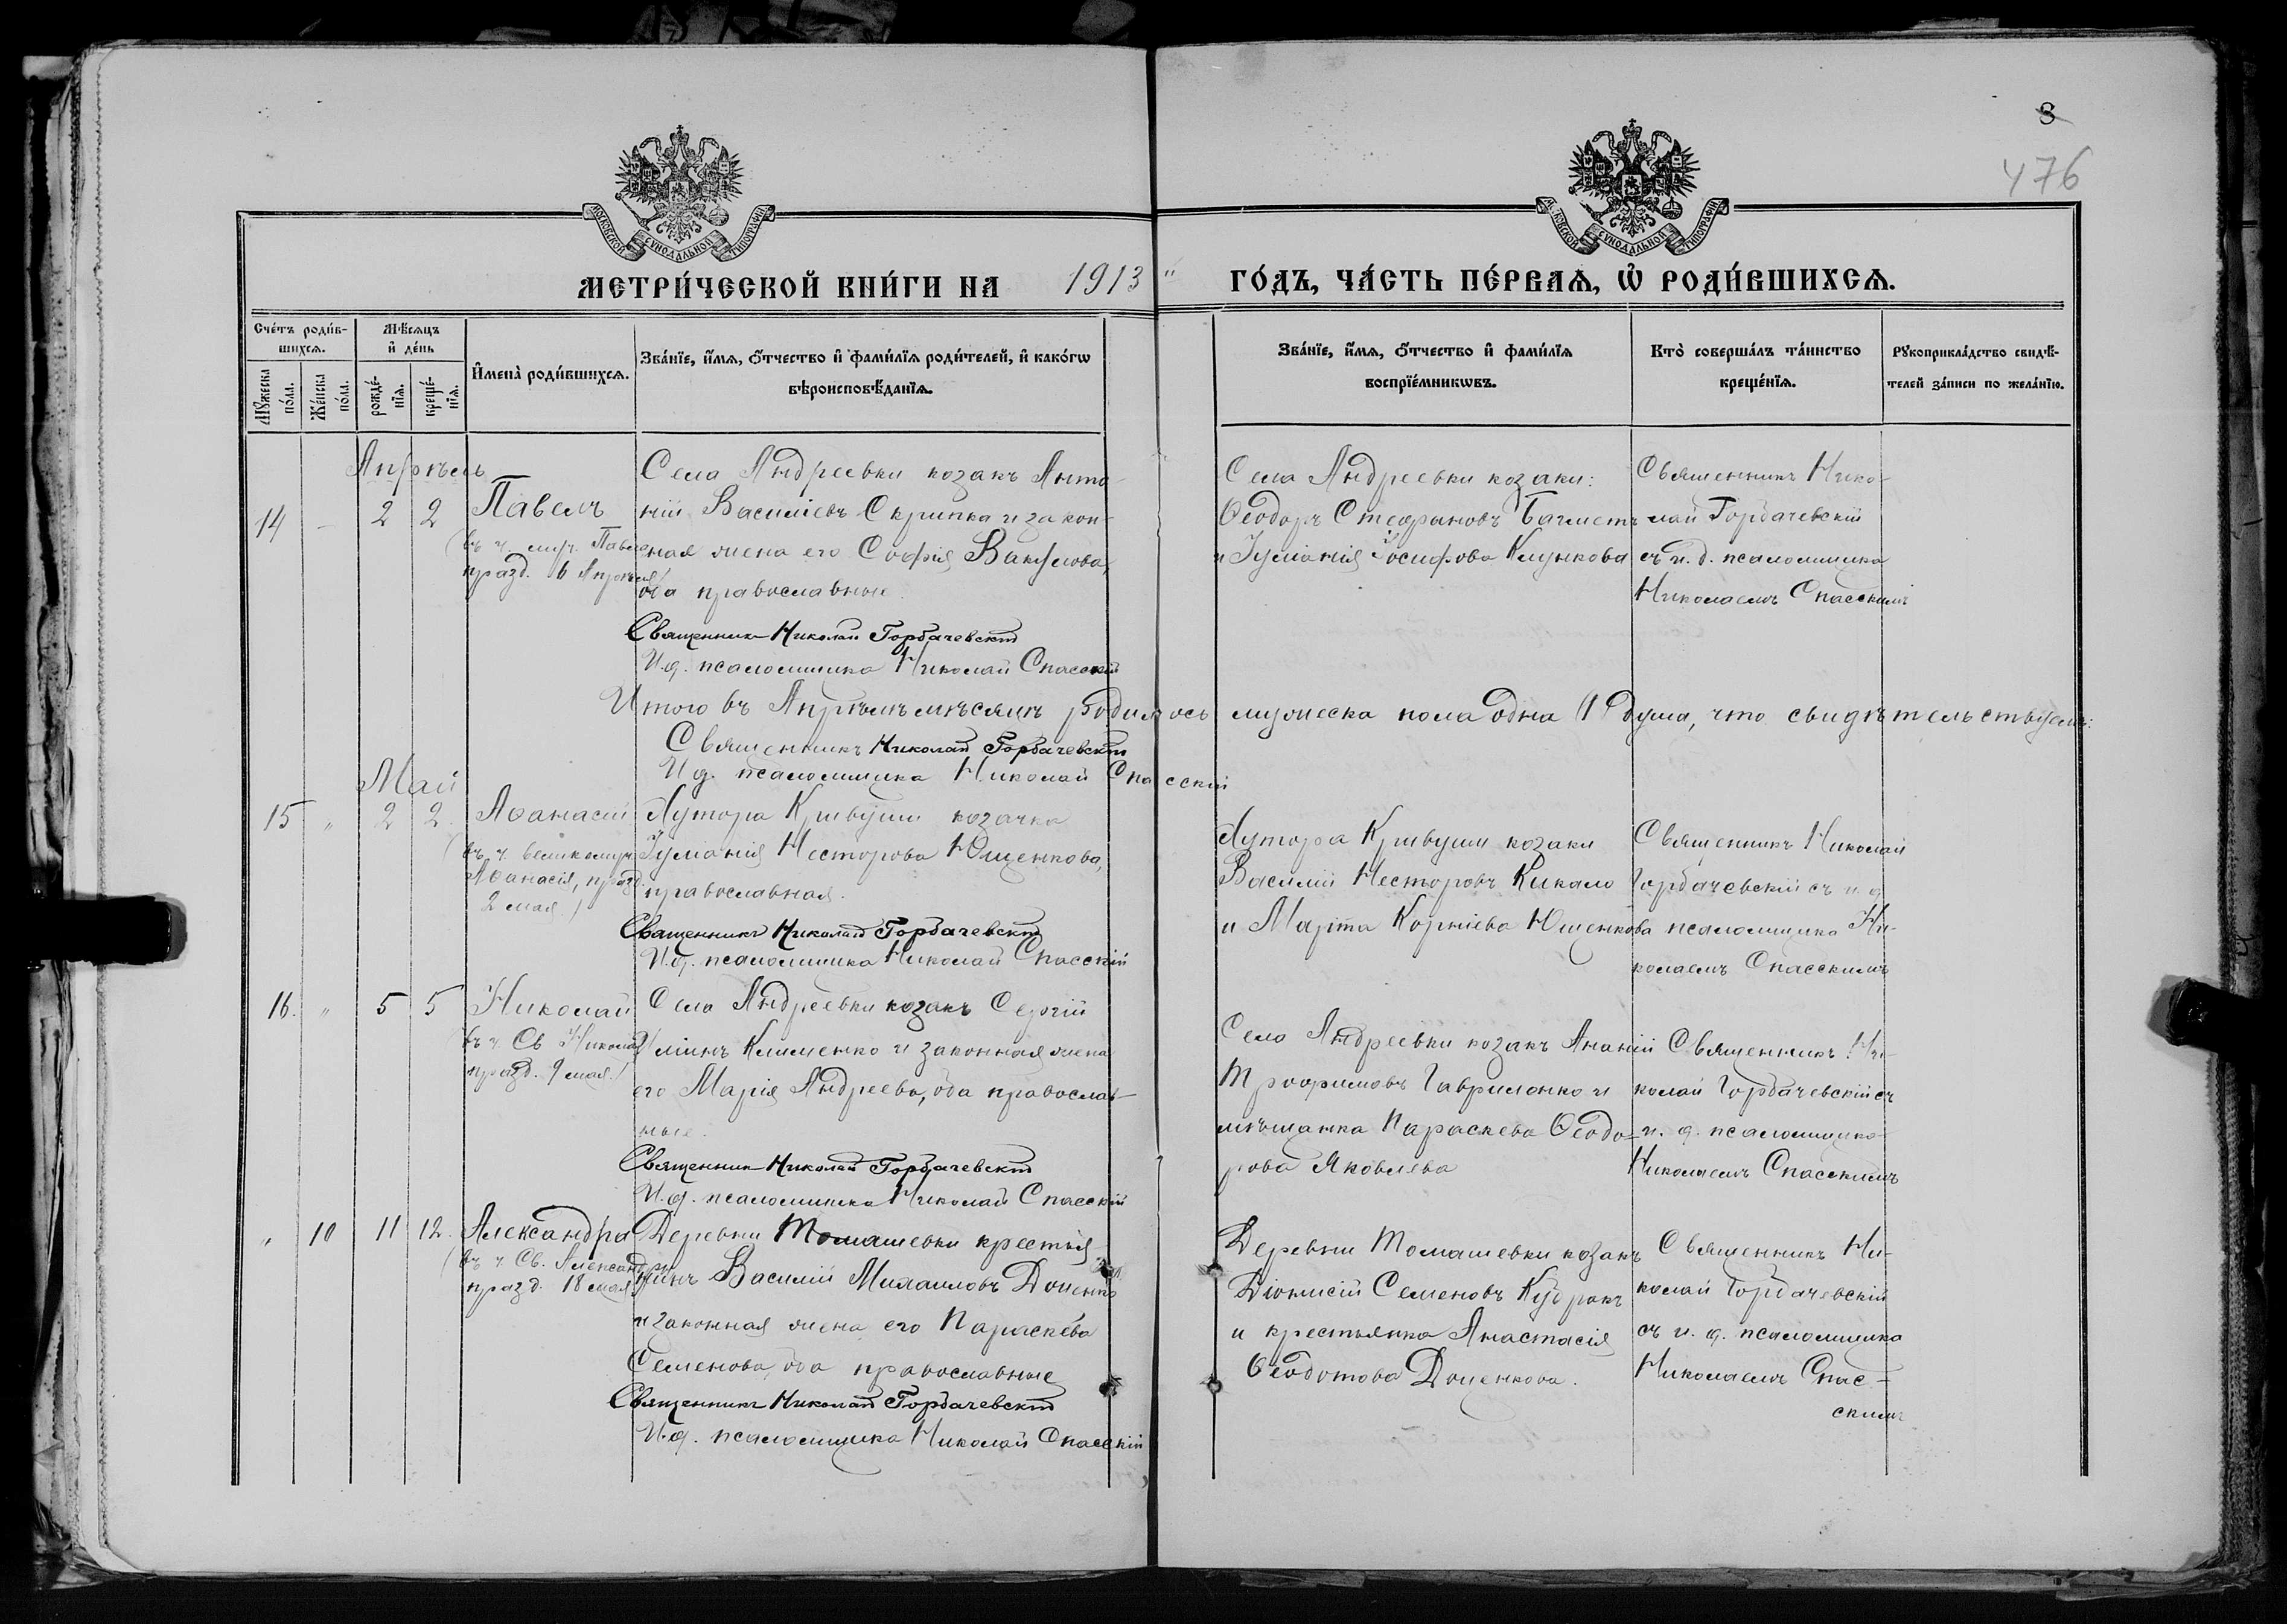 8
476
МОСКОВСКОЙ СѴНОДАЛЬНОЙ ТИПОГРАФІИ
МОСКОВСКОЙ СѴНОДАЛЬНОЙ ТИПОГРАФІИ
МЕТРИ́ЧЕСКОЙ КНИ́ГИ НА 1913 " ГО́ДЪ, ЧА́СТЬ ПЕ́РВАѦ, Ѡ҆ РОДИ́ВШИХСѦ.
Сче́тъ роди́в-
шихсѧ.
Мꙋ́жеска по́ла.
Же́нска по́ла.
Мѣ́сѧцъ
и҆ де́нь
рожде́-
нїѧ.
креще́-
нїѧ.
И҆мена̀ роди́вшихсѧ.
Зва́нїе, и҆́мѧ, ѻ҆́тчество и҆ фами́лїѧ роди́телей, и҆ како́гѡ
вѣроисповѣ́данїѧ.
Зва́нїе, и҆́мѧ, ѻ҆́тчество и҆ фами́лїѧ
воспрїе́мникѡвъ.
Кто̀ соверша́лъ та́инство
креще́нїѧ.
Рꙋкоприкла́дство свидѣ́-
телей за́писи по жела́нїю.
Апрѣль
14 - 2 2 Павелъ
(въ ч. муч. Павла
празд. 6 Апрѣля)
Села Андреевки козакъ Анто-
ній Василіевъ Скрипка и закон-
ная жена его Софія Вакулова,
оба православные.
Священникъ Николай Горбачевскій
И.д. псаломщика Николай Спасскій
Села Андреевки козаки:
Ѳеодоръ Стефановъ Багметъ
и Іуліанія Іосифова Клункова
Священникъ Нико-
лай Горбачевскій
съ и. д. псаломщика
Николаемъ Спасскимъ
Итого въ Апрѣлѣ мѣсяцѣ родилось мужеска пола одна (1) душа, что свидѣтельствуемъ:
Священникъ Николай Горбачевскій
И д. псаломщика Николай Спасскій
Май
15 " 2 2. Аѳанасій
(въ ч. великомуч.
Аѳанасія, празд.
2 мая.)
Хутора Кривуши козачка
Іуліанія Несторова Ющенкова,
православная.
Священникъ Николай Горбачевскій
И.д. псаломщика Николай Спасскій
Хутора Кривуши козаки
Василій Несторовъ Кикало
и Марѳа Корніева Ющенкова
Священникъ Николай
Горбачевскій съ и. д
псаломщика Ни-
колаемъ Спасскимъ
16. " 5 5 Николай
(въ ч. Св Николая
празд. 9 мая.)
Села Андреевки козакъ Сергій
Клименко и законная жена
его Марія Андреева, оба православ-
ные.
Священникъ Николай Горбачевскій
И.д. псаломщика Николай Спасскій
Села Андреевки козакъ Ананій
Трофимовъ Гавриленко и
мѣщанка Параскева Ѳеодо-
рова Яковлева
Священникъ Ни-
колай Горбачевскій съ
и. д. псаломщика
Николаемъ Спасскимъ
" 10 11 12. Александра
(въ ч. Св. Александры
празд. 18 мая)
Деревни Томашевки крестья-
нинъ Василій Михаиловъ Доценко
и законная жена его Параскева
Семенова, оба православные
Священникъ Николай Горбачевскій
И.д. псаломщика Николай Спасскій
Деревни Томашевки козакъ
Діонисій Семеновъ Кудракъ
и крестьянка Анастасія
Ѳеодотова Доценкова.
Священникъ Ни-
колай Горбачевскій
съ и. д. псаломщика
Николаемъ Спас-
скимъ